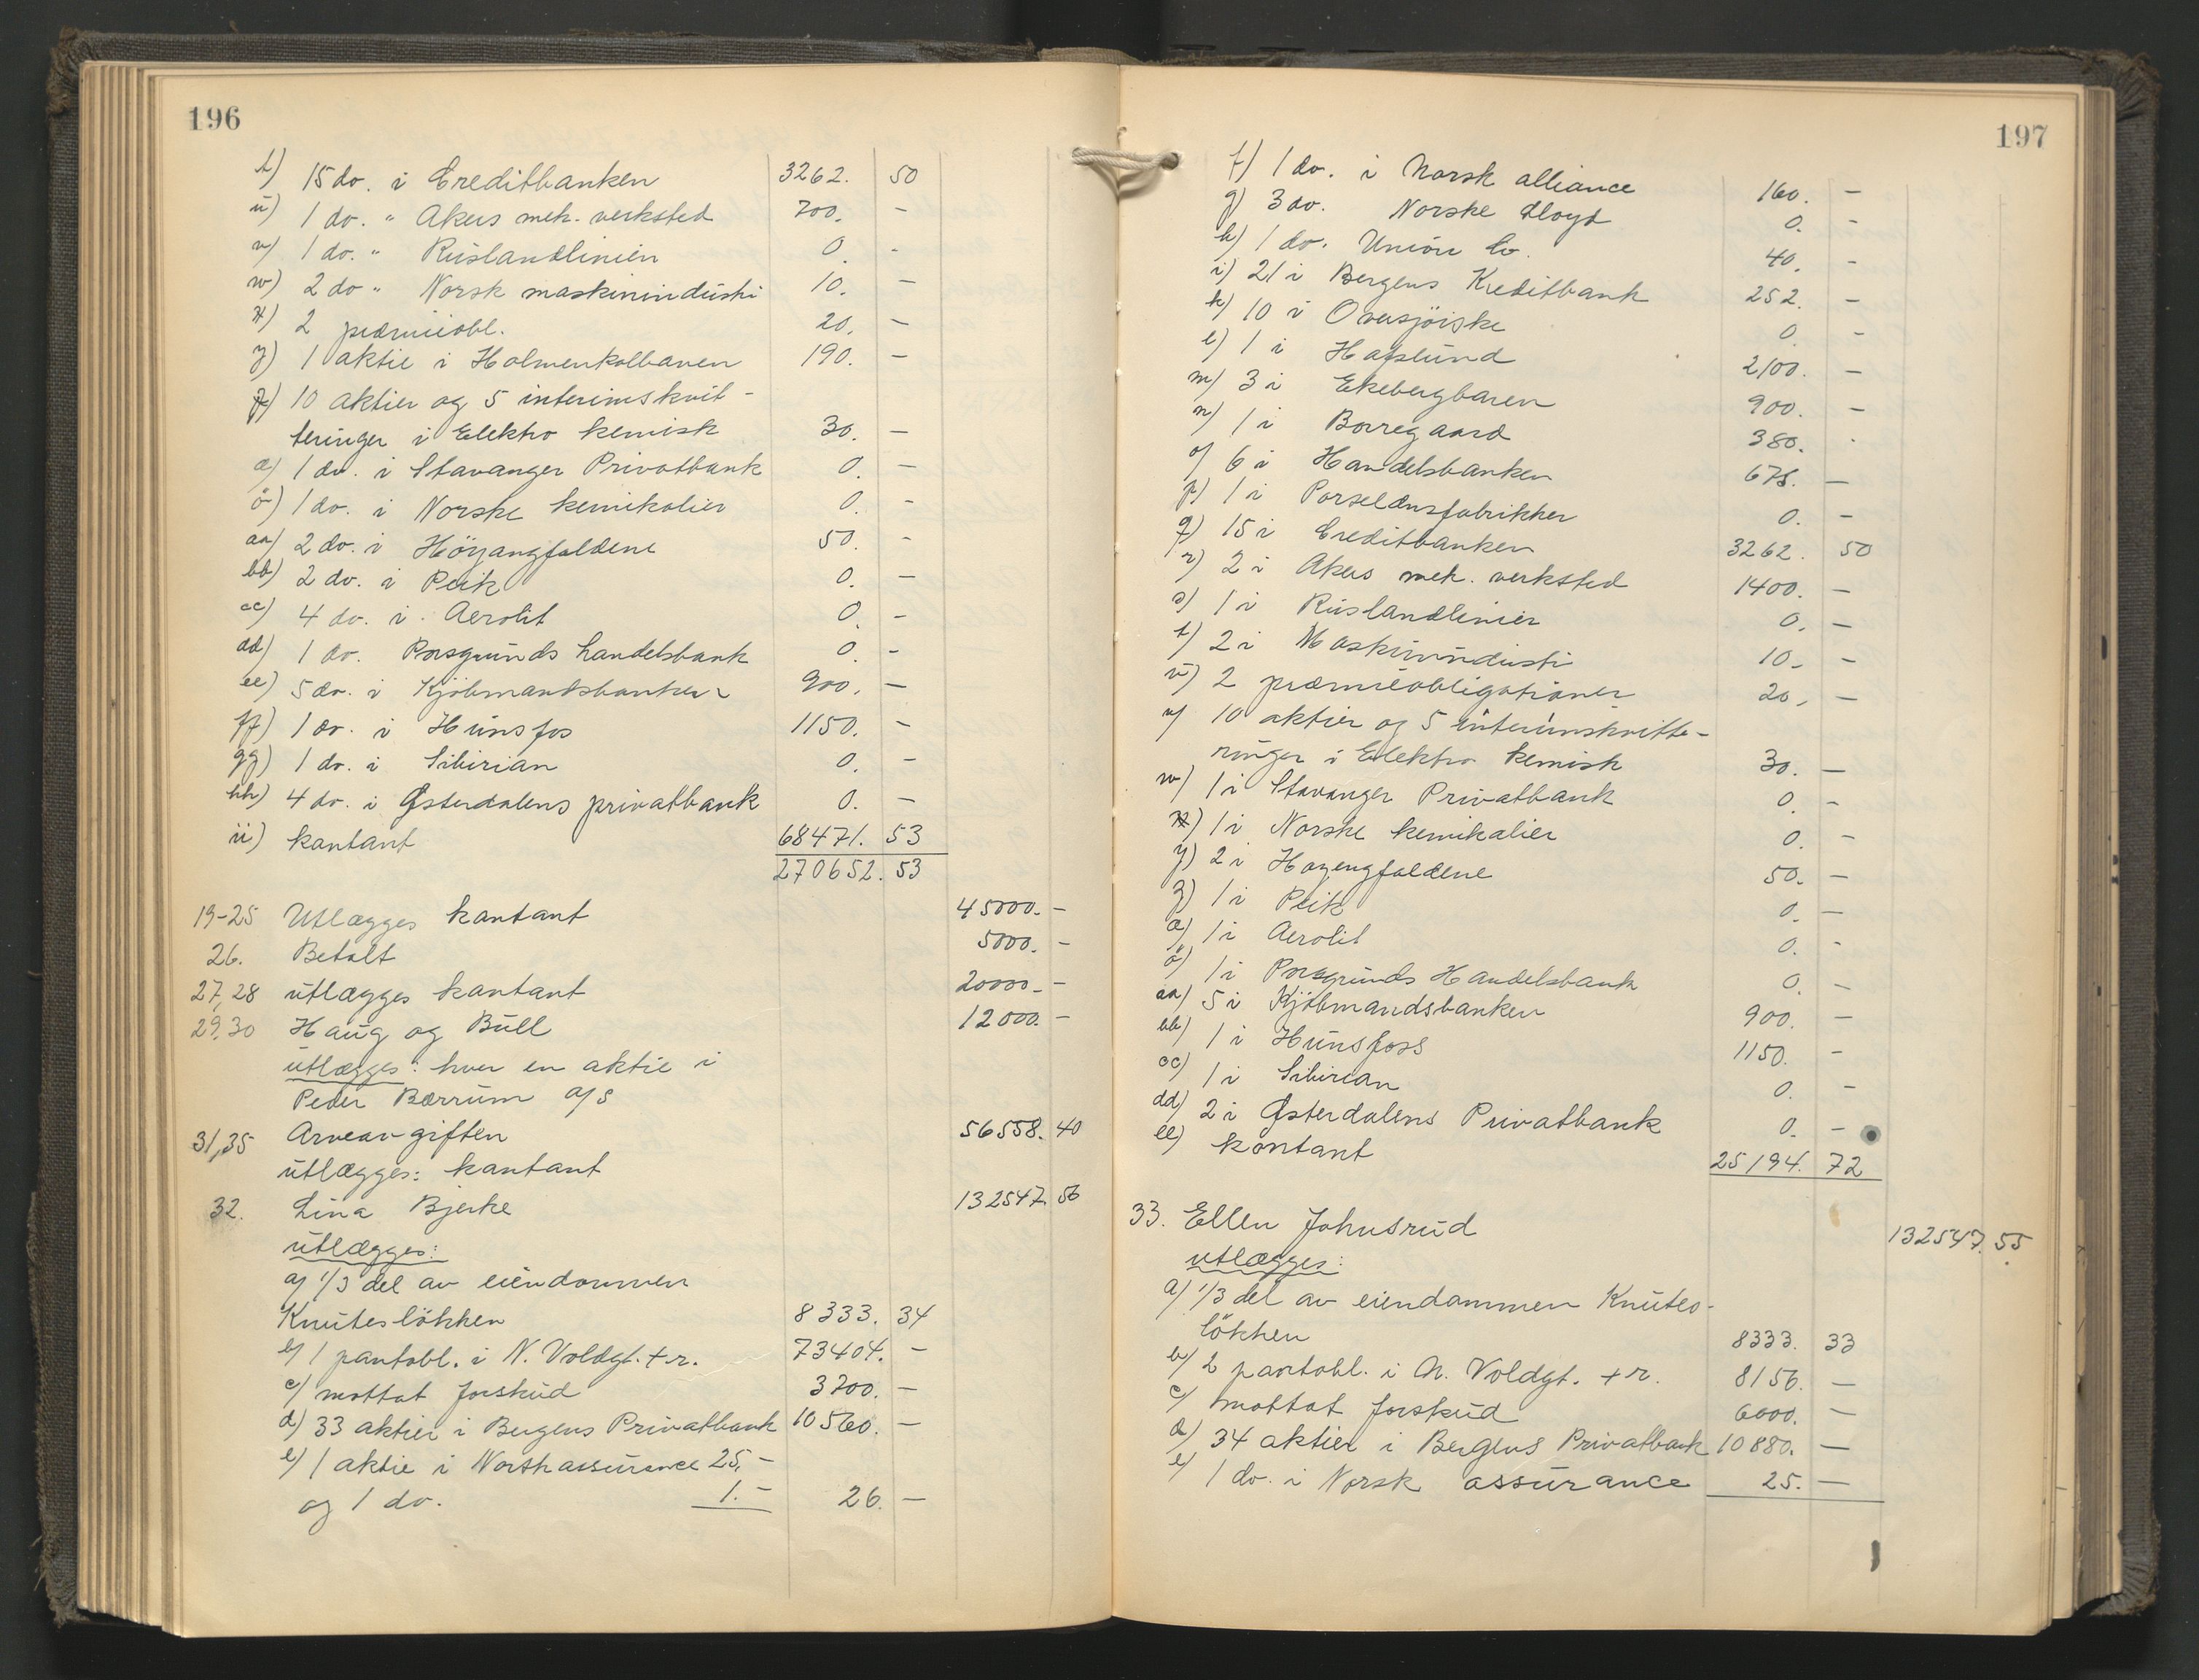 196
t) 15 do. i Creditbanken 3262. 50
u) 1 do. " Akers mek. verksted 700. -
v) 1 do. " Ruslandlinien 0. -
w) 2 do " Norsk maskinindustri 10. -
x) 2 præmieobl. 20. -
y) 1 aktie i Holmenkolbanen 190. -
z) 10 aktier og 5 interimskvit-
teringer i Elektro kemisk 30. -
æ) 1 do. i Stavanger Privatbank 0. -
ö) 1 do. i Norske kemikalier 0. -
aa) 2 do. i Höyangfaldene 50. -
bb) 2 do. i Peik 0. -
cc) 4 do. i Aerolit 0. -
dd) 1 do. Porsgrunds handelsbank 0. -
ee) 5 do. i Kjöbmandsbanken 900. -
ff) 1 do. i Hunsfos 1150. -
gg) 1 do. i Sibirian 0. -
hh) 4 do. i Østerdalens privatbank 0. -
ii) kontant 68471. 53
270652. 53
19-25 Utlægges kontant 45000. -
26. Betalt 5000. -
27,28 utlægges kontant 20000. -
29,30 Haug og Bull 12000. -
utlægges: hver en aktie i
Peder Bærrum a/s
31,35 Arveavgiften 56558. 40
utlægges: kontant
32. Lina Bjerke 132547. 56
utlægges:
a) 1/3 del av eiendommen
Knutesløkken 8333. 34
b) 1 pantobl. i N. Voldgt. + r. 73404. -
c) mottat forskud 3200. -
d) 33 aktier i Bergens Privatbank 10560. -
e) 1 aktie i North assurance 25,-
og 1 do. 1.- 26. -
197
f) 1 do. i Norsk alliance 160. -
g) 3 do. Norske Lloyd 0. -
h) 1 do. Union Co. 40. -
i) 21 i Bergens Kreditbank 252. -
k) 10 i Oversjöiske 0. -
l) 1 i Hafslund 2100. -
m) 3 i Ekebergbanen 900. -
n) 1 i Borregaard 380. -
o) 6 i Handelsbanken 675. -
p) 1 i Porselænsfabrikker 0. -
q) 15 i Creditbanken 3262. 50
r) 2 i Akers mek. verksted 1400. -
s) 1 i Ruslandlinier 0. -
t) 2 i Maskinindustri 10. -
u) 2 præmieobligationer 20, -
v) 10 aktier og 5 interimskvitte-
ringer i Elektro kemisk 30. -
w) 1 i Stavanger Privatbank 0. -
x) 1 i Norske kemikalier 0. -
y) 2 i Hayengfaldene 50. -
z) 1 i Peik 0. -
æ) 1 i Aerolit 0. -
ö) 1 i Porsgrunds Handelsbank 0. -
aa) 5 i Kjöbmandsbanken 900. -
bb) 1 i Hunsfoss 1150. -
cc) 1 i Sibirian 0. -
dd) 2 i Østerdalens Privatbank 0. -
ee) kontant 25194. 72
33. Ellen Johnsrud 132547. 55
utlægges:
a) 1/3 del av eiendammen Knutes-
lökken 8333. 33
b) 2 pantobl. i N. Voldgt. + r. 8156. -
c) mottat forskud 6000. -
d) 34 aktier i Bergens Privatbank 10880. -
e) 1 do. i Norsk assurance 25. -